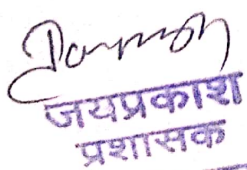 जयप्रकाश
प्रशासक